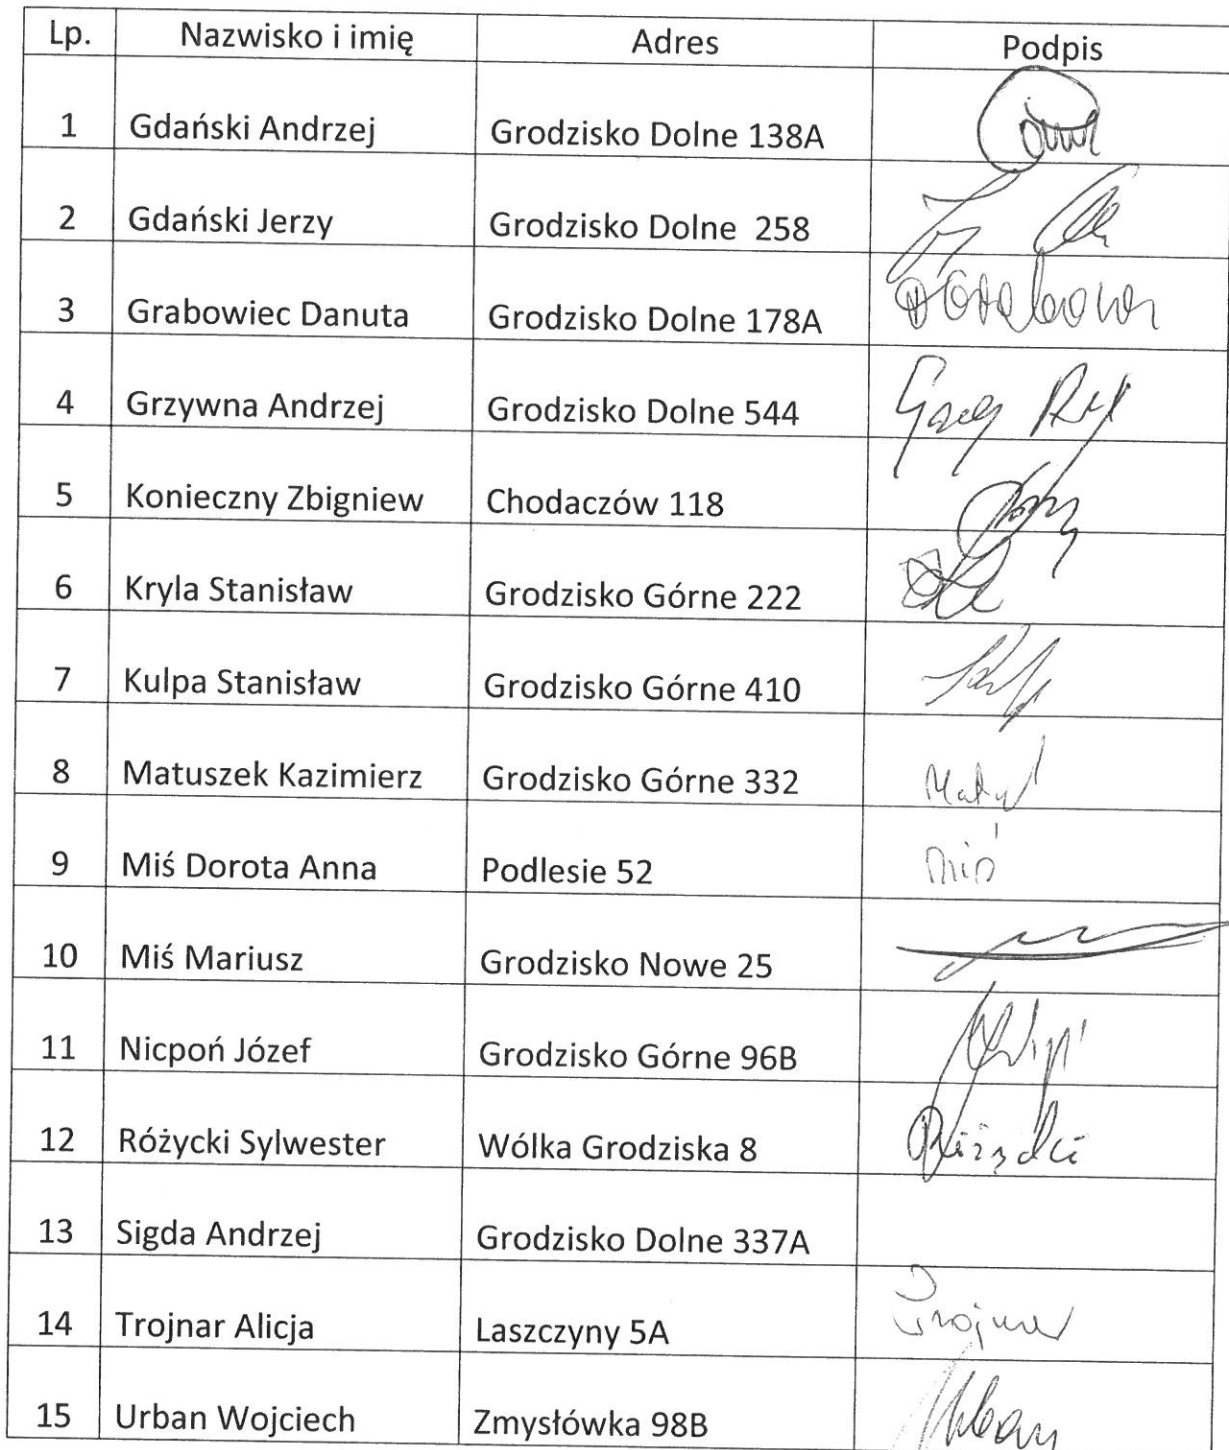 Lp. Nazwisko i imię Adres Podpis
1 Gdański Andrzej Grodzisko Dolne 138A
2 Gdański Jerzy Grodzisko Dolne 258
3 Grabowiec Danuta Grodzisko Dolne 178A
4 Grzywna Andrzej Grodzisko Dolne 544
5 Konieczny Zbigniew Chodaczów 118
6 Kryla Stanisław Grodzisko Górne 222
7 Kulpa Stanisław Grodzisko Górne 410
8 Matuszek Kazimierz Grodzisko Górne 332
9 Miś Dorota Anna Podlesie 52 Miś
10 Miś Mariusz Grodzisko Nowe 25
11 Nicpoń Józef Grodzisko Górne 96B
12 Różycki Sylwester Wólka Grodziska 8
13 Sigda Andrzej Grodzisko Dolne 337A
14 Trojnar Alicja Laszczyny 5A
15 Urban Wojciech Zmysłówka 98B